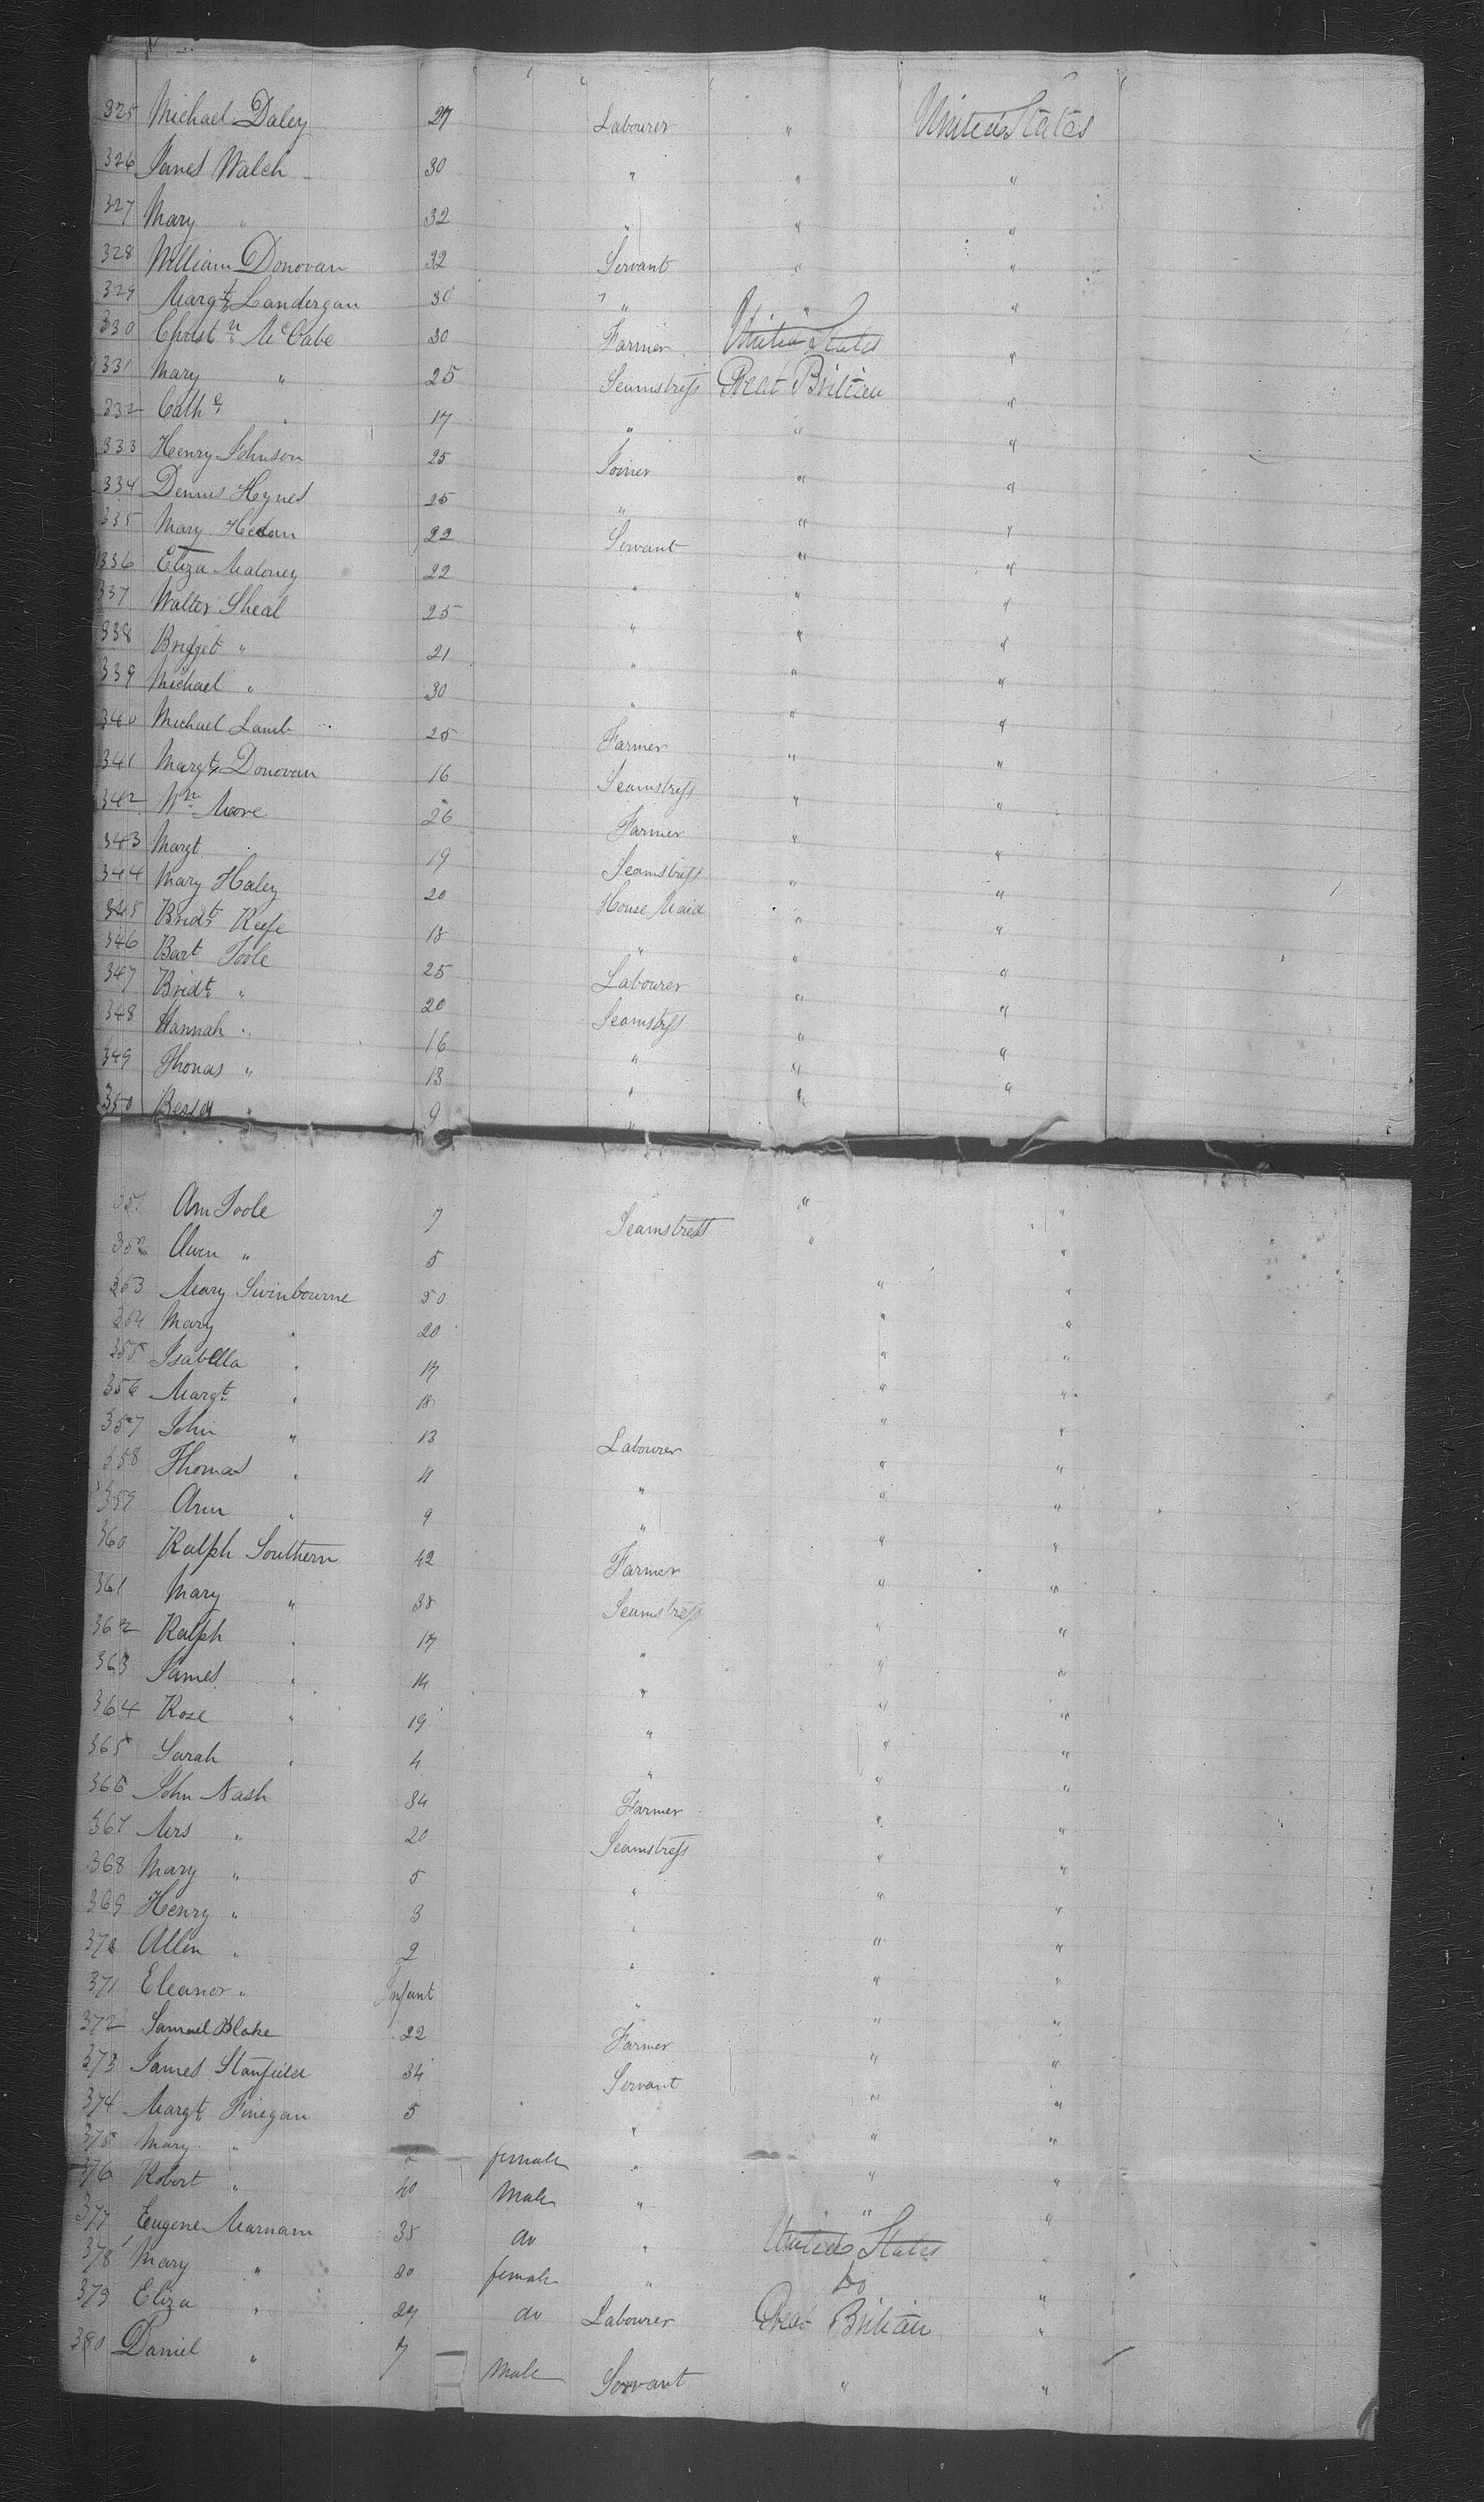 325 Michael Daley 27 Labourer " United States
326 James Walch 30 " " "
327 Mary " 32 " " "
328 William Donovan 32 Servant " "
329 Margt Landergan 30 " " "
330 Christn McCabe 30 Farmer United States "
331 Mary " 25 Seamstress Great Britian "
332 Cathe " 17 " " "
333 Henry Johnson 25 Joiner " "
334 Dennis Hynes 25 " " "
335 Mary 22 Servant " "
336 Eliza Maloney 22 " " "
337 Walter Sheal 25 " " "
338 Bridget " 21 " " "
339 Michael " 30 " " "
340 Michael Lamb 25 Farmer " "
341 Margt Donovan 16 Seamstress " "
342 Wm Moore 26 Farmer " "
343 Margt 19 Seamstress " "
344 Mary Haley 20 House Maid " "
345 Bridt Keefe 18 " " "
346 Bart Toole 25 Labourer " "
347 Bridt " 20 Seamstress " "
348 Hannah " 16 " " "
349 Thomas " 13 " " "
350 " 9 "
351 Ann Toole 7 Seamstress " "
352 Owen " 5 " "
353 Mary Swinbourne 50 " "
354 Mary " 20 " "
355 Isabella " 17 " "
356 Margt " 18 " "
357 John " 13 Labourer " "
358 Thomas " 11 " " "
359 Ann " 9 " " "
360 Ralph Southern 42 Farmer " "
361 Mary " 38 Seamstress " "
362 Ralph " 17 " " "
363 James " 14 " " "
364 Rose " 19 " " "
365 Sarah " 4 " " "
366 John Nash 34 Farmer " "
367 Mrs " 20 Seamstress " "
368 Mary " 5 " " "
369 Henry " 3 " " "
370 Allen " 2 " " "
371 Eleanor " Infant " " "
372 Samuel Blake 22 Farmer " "
373 James Stanfield 34 Servant " "
374 Margt Finegan 5 " " "
375 Mary " 2 female " " "
376 Robert " 40 Male " " "
377 Eugene Marnam 35 do " United States "
378 Mary " 20 female " Do "
379 Eliza " 27 do Labourer Great Britian "
380 Daniel " 7 Male Servant " "